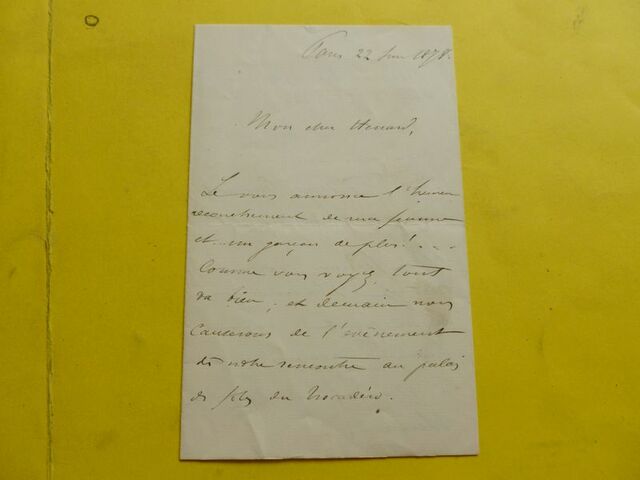 Paris 22 Juin 1878.
Mon cher Henard,
Je vous annonce l'heureux
accouchement de ma femme
et un garçon de plus! ...
Comme vous voyez, tout
va bien, et demain nous
causerons de l'evènement
de notre rencontre au palais
de fêtes du Trocadéro.